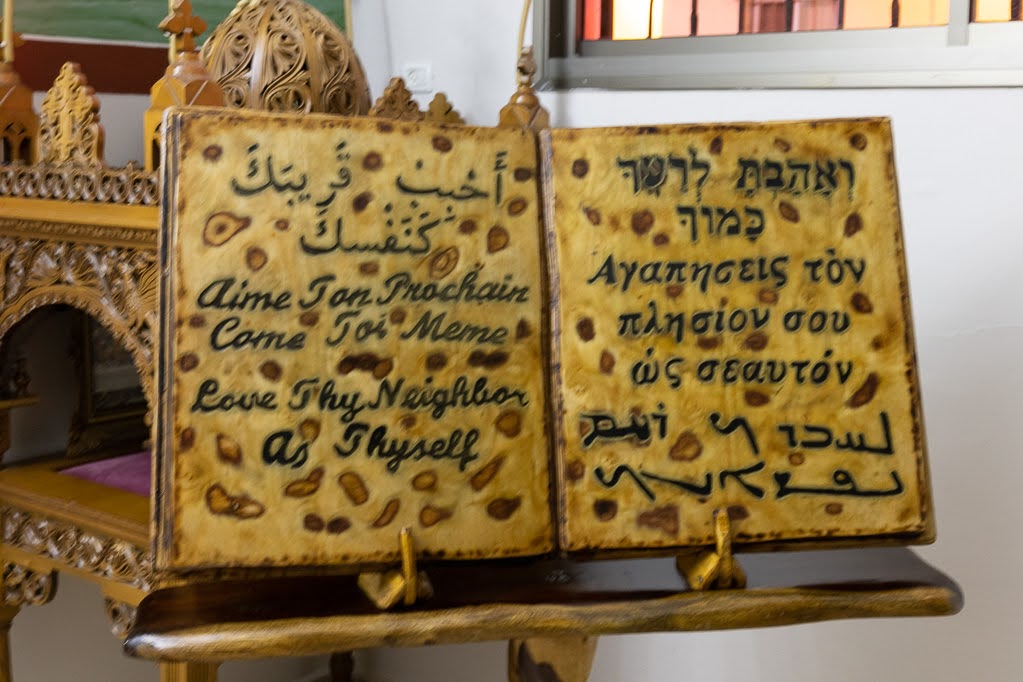 أَحْبِبْ قَرِيبَكَ
كَنَفْسِكَ
Aime Ton Prochain
Come Toi Meme
Love Thy Neighbor
As Thyself
וְאָהַבְתָּ לְרֵעֲךָ
כָּמוֹךָ
Αγαπησεις τὸν
πλησίον σου
ὡς σεαυτόν